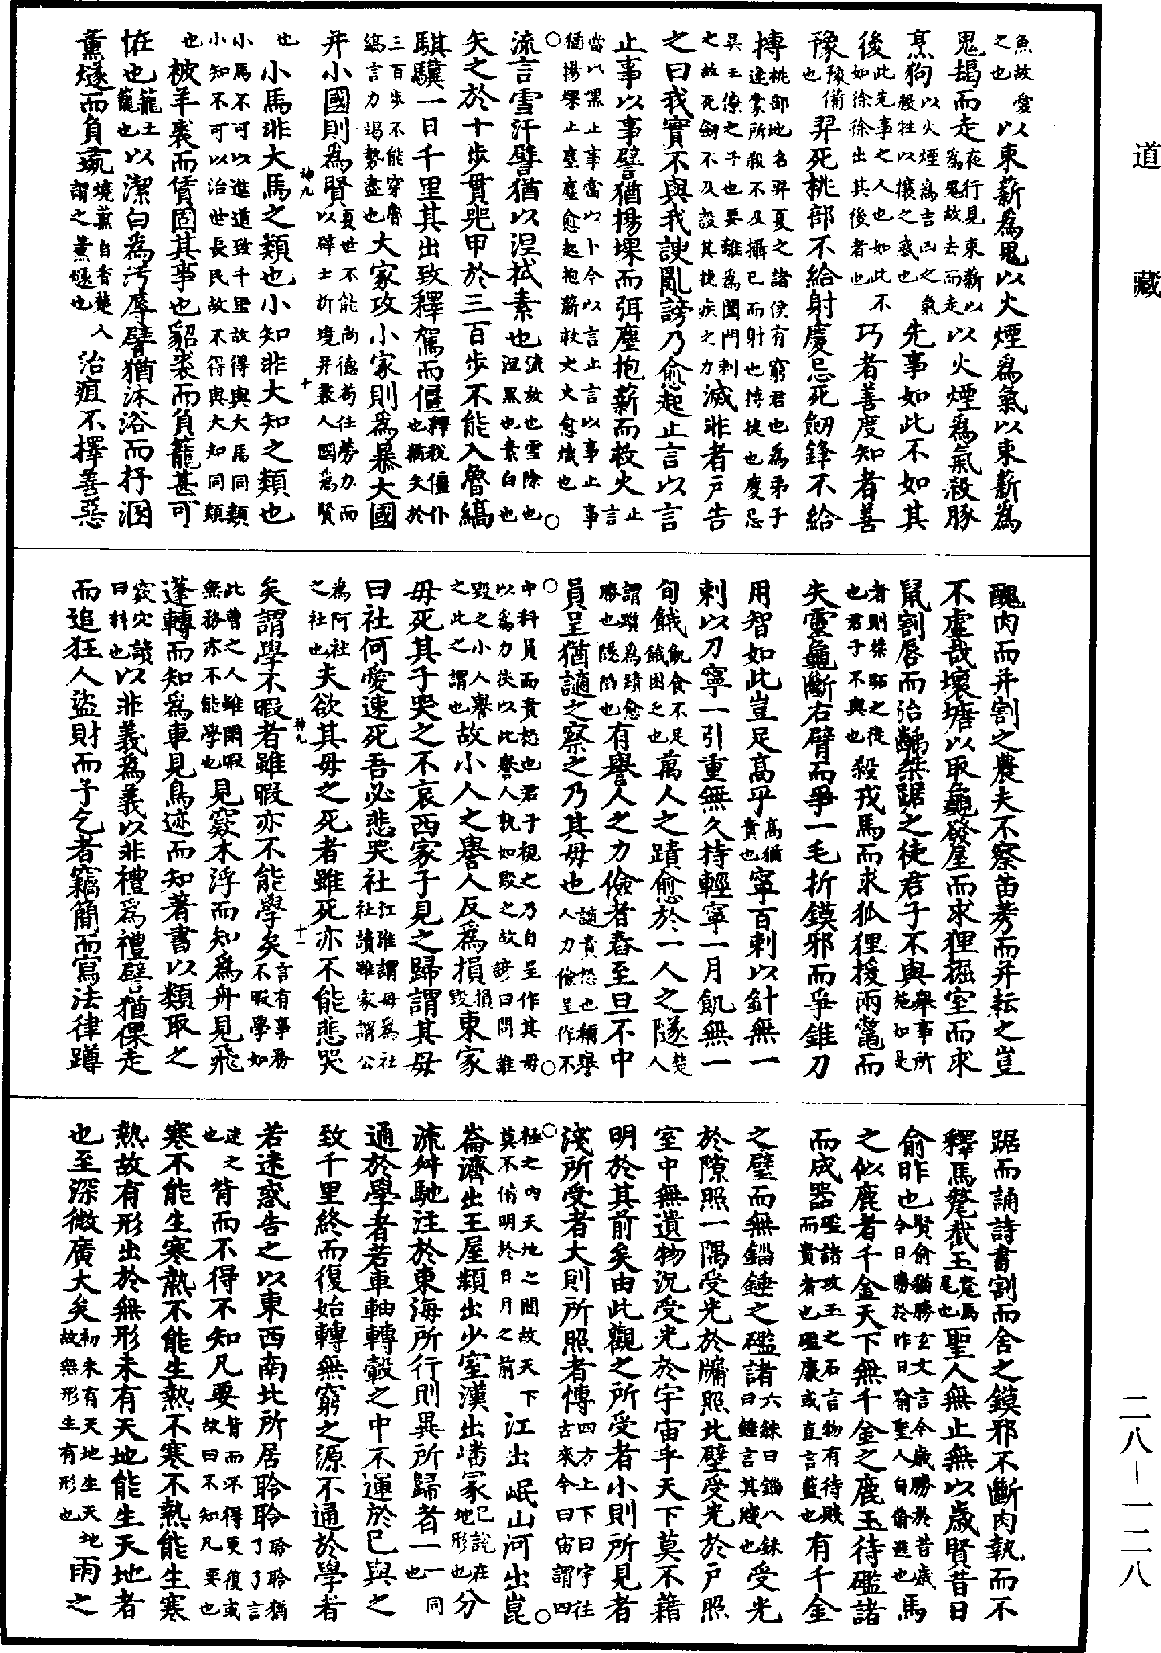 道藏
魚故愛之也以束薪為鬼以火煙為氣以束薪為
鬼朅而走夜行見束薪以為鬼故去而走以火煙為氣殺豚
烹狗以火煙為吉凶之氣殺牲以禳之惑也先事如此不如其
後此先事之人也如此不如徐徐出其後者也巧者善度知者善
豫豫備也羿死桃部不給射慶忌死劒鋒不給
搏桃部地名羿夏之諸侯有窮君也為弟子逢蒙所殺不及攝已而射也搏捷也慶忌
吳王僚之子也要離為闔門刺之故死劒不及設其捷疾之力滅非者戶告
之曰我實不與我諛亂謗乃愈起止言以言
止事以事譬猶揚堁而弭塵抱薪而救火止言
當以默止事當以卜今以言止言以事止事猶揚堁止塵塵愈起抱薪救火火愈熾也
○流言雪汙譬猶以涅拭素也流放也雪除也涅黑也素白也○
矢之於十步貫兕甲於三百步不能入魯縞
騏驥一日千里其出致釋駕而僵釋稅僵仆也猶矢於
三百步不能穿魯縞言力竭勢盡也大家攻小家則為暴大國
并小國則為賢夏世不能尚德苟任勞力而以辟土折境并兼人國為賢
神九 十
也小馬非大馬之類也小知非大知之類也
小馬不可以進道致千里故得與大馬同類小知不可以治世長民故不得與大知同類
也被羊裘而賃固其事也貂裘而負籠甚可
怪也籠土籠也以潔白為汙辱譬猶沐浴而抒溷
薰燧而負彘燒薰自香楚人謂之薰燧也治疽不擇善惡
醜肉而并割之農夫不察苗莠而并耘之豈
不虛哉壞塘以取龜發屋而求狸掘室而求
鼠割唇而治齲桀跖之徒君子不與舉事所施如是
者則桀跖之徒也君子不與也殺戎馬而求狐狸援兩鼈而
失靈龜斷右臂而爭一毛折鏌邪而爭錐刀
用智如此豈足高乎高猶貴也寧百刺以針無一
刺以刀寧一引重無久持輕寧一月飢無一
旬餓飢食不足餓困乏也萬人之蹟愈於一人之隧楚人
謂躓為蹟愈勝也隧陷也有譽人之力儉者舂至旦不中
員呈猶謫之察之乃其母也謫責怒也稱譽人力儉呈作不
○中科員而責怒也君子視之乃自呈作其母以為力俠以此譽人孰如毀之故諺曰問誰○
毀之小人譽之此之謂也故小人之譽人反為損損毀東家
母死其子哭之不哀西家子見之歸謂其母
曰社何愛速死吾必悲哭社江淮謂母為社社讀雖家謂公
為阿社之社也夫欲其母之死者雖死亦不能悲哭
神九 十一
矣謂學不暇者雖暇亦不能學矣言有事務不暇學如
此曹之人雖閑暇無務亦不能學也見窾木浮而知為舟見飛
蓬轉而知為車見鳥迹而知著書以類取之
窾穴讀曰科也以非義為義以非禮為禮譬猶倮走
而追狂人盜財而予乞者竊簡而寫法律蹲
踞而誦詩書割而舍之鏌邪不斷肉執而不
釋馬氂截玉氂馬尾也聖人無止無以歲賢昔日
俞昨也賢俞猶勝玄文言今歲勝於昔歲今日勝於昨日喻聖人自脩進也馬
之似鹿者千金天下無千金之鹿玉待礛諸
而成器礛諸攻玉之石言物有待賤而貴者也礛廉或直言藍也有千金
之璧而無錙錘之礛諸六銖曰錙八銖曰錘言其賤也受光
於隙照一隅受光於牖照北壁受光於戶照
室中無遺物況受光於宇宙乎天下莫不藉
明於其前矣由此觀之所受者小則所見者
淺所受者大則所照者博四方上下曰宇往古來今曰宙謂四
○極之內天地之間故天下莫不借明於日月之前江出岷山河出崑○
崙濟出王屋潁出少室漢出嶓冢已說在地形也分
流舛馳注於東海所行則異所歸者一一同也
通於學者若車軸轉轂之中不運於己與之
致千里終而復始轉無窮之源不通於學者
若迷惑告之以東西南北所居聆聆聆聆猶了了言
迷之也背而不得不知凡要背而不得更復或故曰不知凡要也
寒不能生寒熱不能生熱不寒不熱能生寒
熱故有形出於無形未有天地能生天地者
也至深微廣大矣初未有天地生天地故無形生有形也雨之
二八-一二八